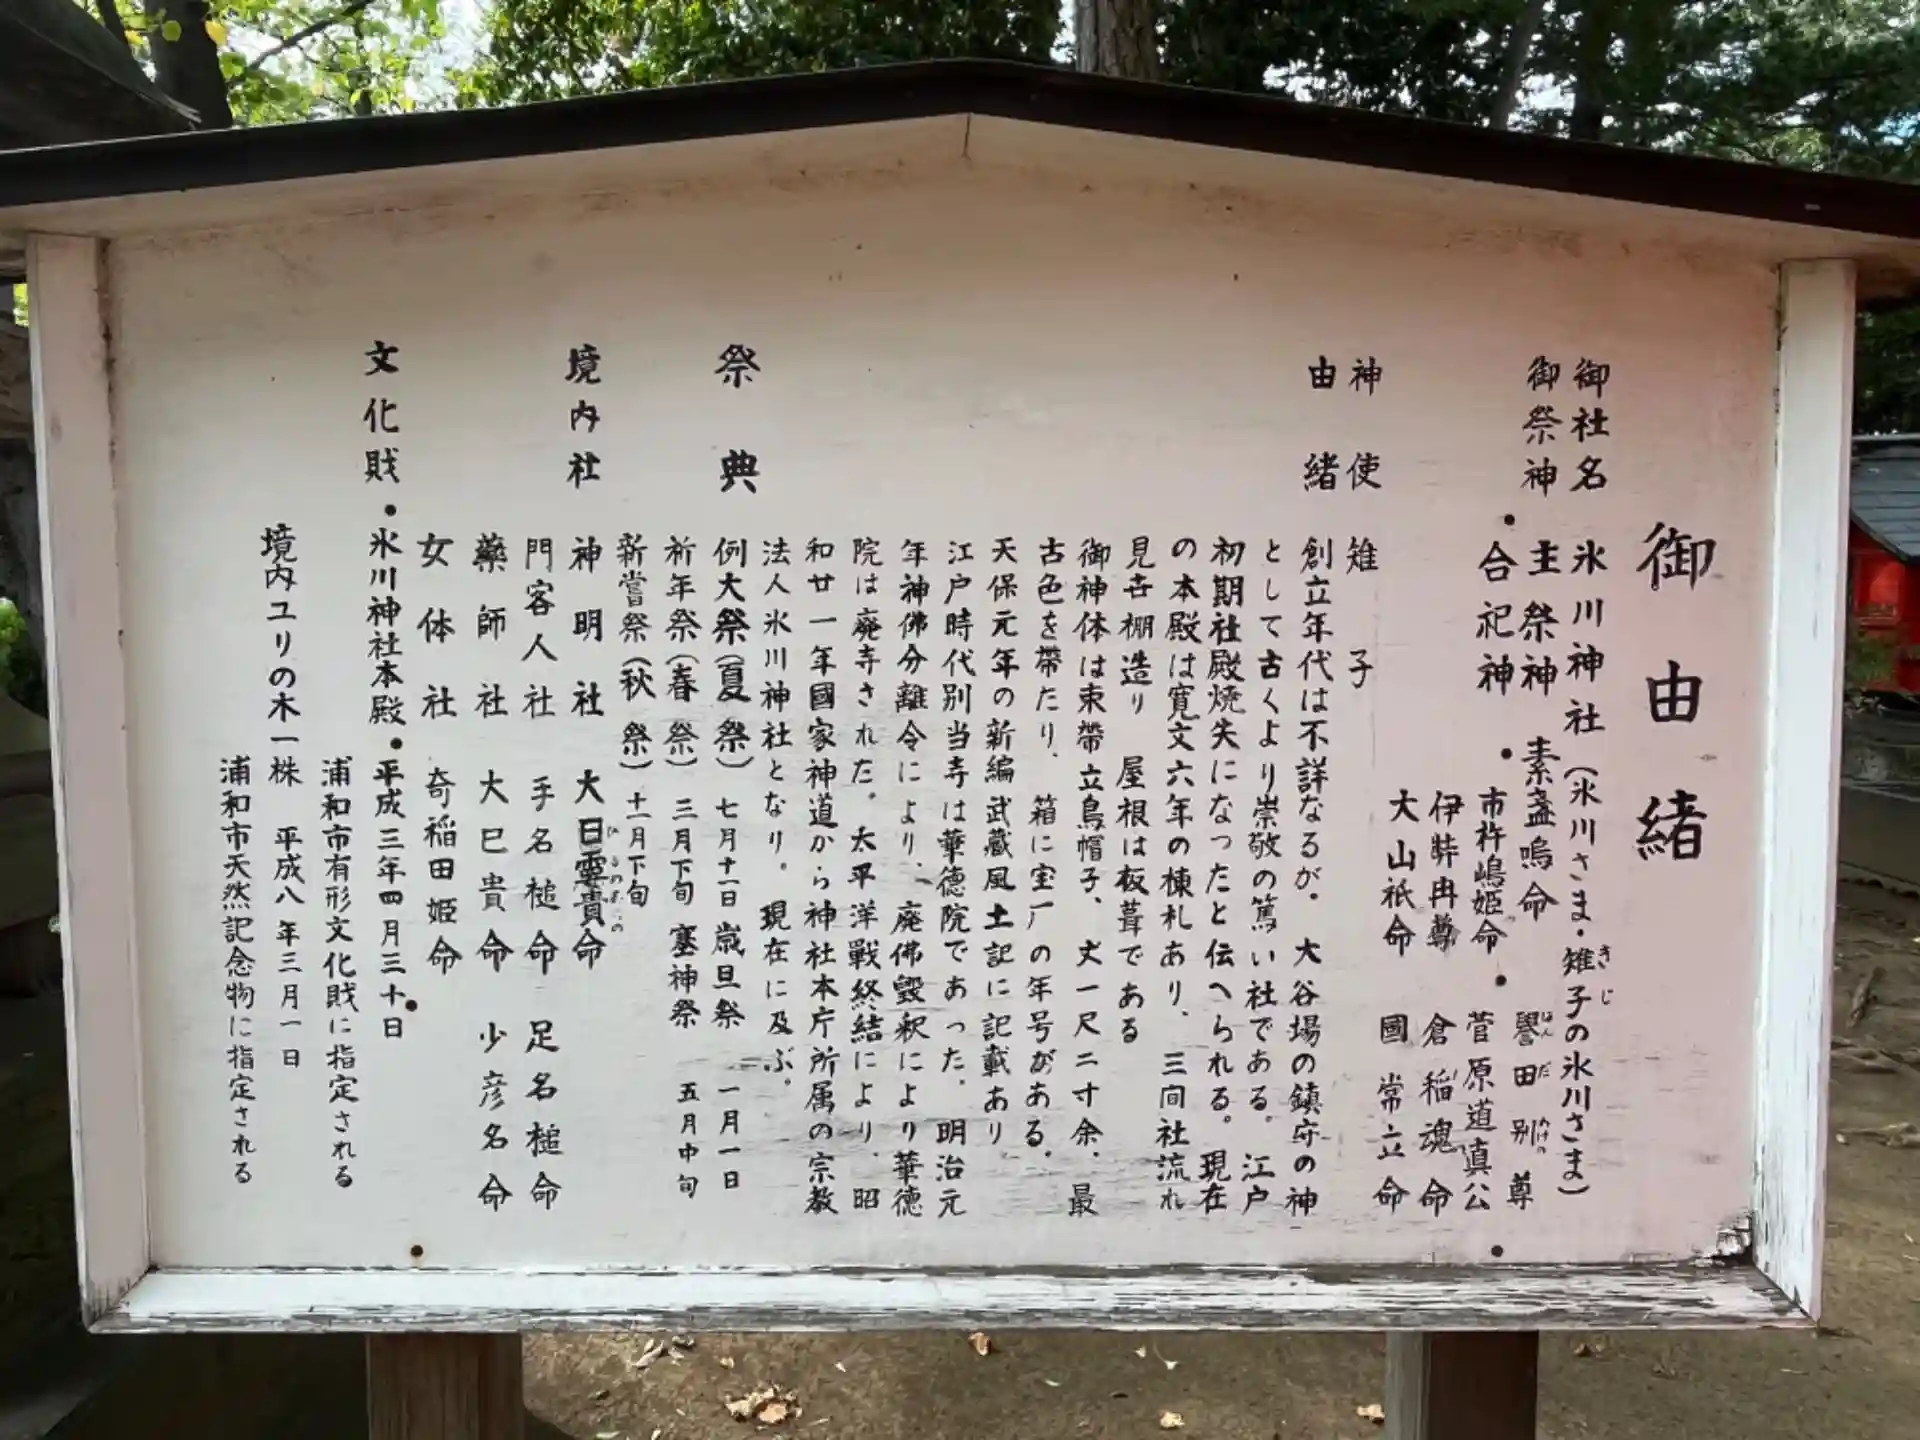 御由緒
御社名 氷川神社(氷川さま・雉子の氷川さま)
きじ
御祭神 主祭神 素盞嗚命 譽田別尊
ほんだ わけの
合祀神 市杵嶋姫命 菅原道真公
伊弉冉尊 倉稲魂命
大山祇命 國常立命
神使 雉子
由緒 創立年代は不詳なるが。大谷場の鎮守の神
として古くより崇敬の篤い社である。江戸
初期社殿焼失になったと伝へられる。現在
の本殿は寛文六年の棟札あり、三间社流れ
見世棚造り 屋根は板葺である
御神体は束帶立烏帽子、丈一尺二寸余、最
古色を帶たり、箱に宝厂の年号がある、
天保元年の新編武蔵風土記に記載あり
江戸時代別当寺は華徳院であった、明治元
年神佛分離令により、廃佛毀釈により華徳
院は廃寺された。太平洋戰終結により、昭
和廿一年國家神道から神社本庁所属の宗教
法人氷川神社となり。現在に及ぶ。
祭典 例大祭(夏祭) 七月十一日 歳旦祭 一月一日
祈年祭(春祭) 三月下旬 塞神祭 五月中旬
新嘗祭(秋祭) 十一月下旬
境内社 神明社 大日孁貴命
門客人社 手名槌命 足名槌命
藥師社 大巳貴命 少彦名命
女体社 奇稲田姫命
文化財・氷川神社本殿・平成三年四月三十日
浦和市有形文化財に指定される
境内ユリの木一株 平成八年三月一日
浦和市天然記念物に指定される